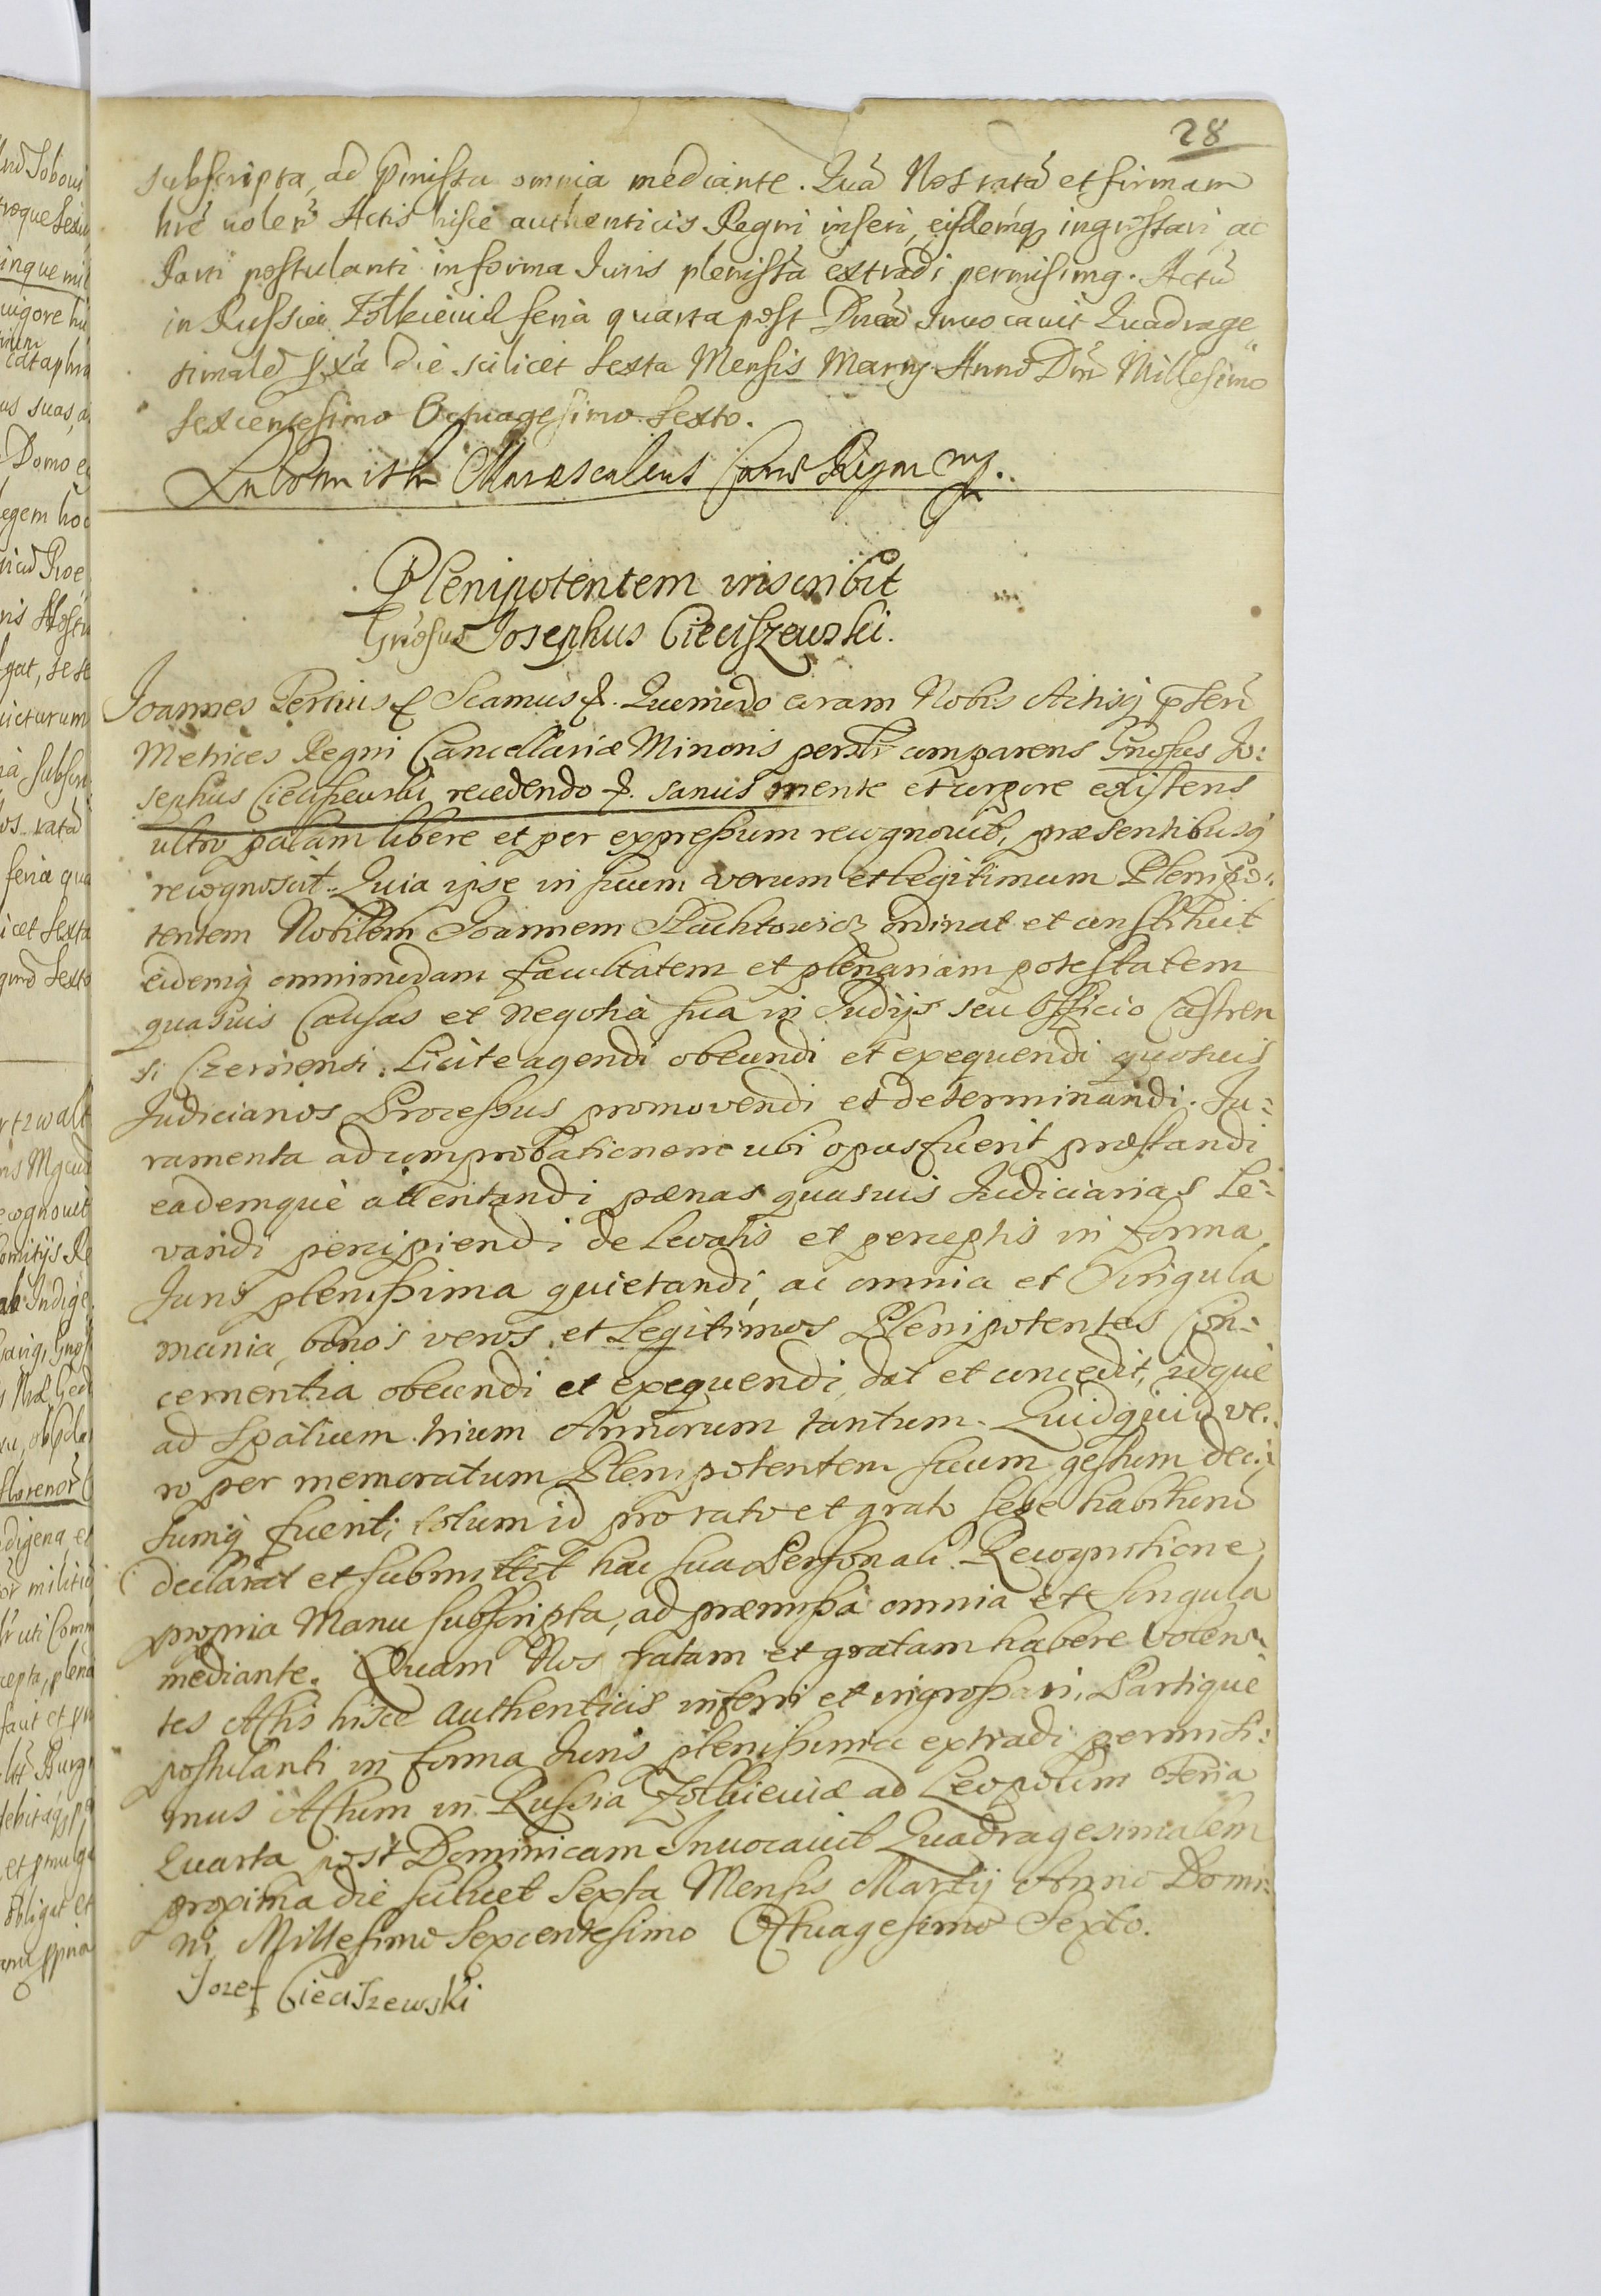 28
subscripta, ad p̃missa omnia mediante. Quã Nos ratã et firmam
hrẽ volẽn Actis hisce authenticis Regni inseri, eisdemq ingrossari, ac
Parti postulanti in forma Iuris plenissã extradi permisimq. Actũ
in Russia Zolkieviæ feria quarta post Dñcã Invocavit Quadrage
simalẽ p̃xã die scilicet sexta Mensis Martij Anno Dñi Millesimo
sexcentesimo Octuagesimo sexto.
Lubomirski Maresculcus Regni mp.
Plenipotentem inscribit
Gñosus Josephus Cieciszewski.
Joannes Tertius &. Scamus &. Quomodo coram Nobis Actisq p̃sen
Metrices Regni Cancellariæ Minoris persr comparens Gnosus Jo:
sephus Cieciszewski recedendo &. sanus mente et corpore existens
ultro palam libere et per expressum recognovit, præsentibusq
recognoscit. Quia ipse in suum verum et legitimum Plenipo:
tentem Nobilem Joannem Szlachtowicz ordinat et constituit
eidemq omnimodam facultatem et plenariam potestatem
quasvis Causas et negotia sua in Judijs seu Officio Castren
si Czernensi. Licite agendi obeundi et exequendi quosvis
Judiciarios Processus promovendi et determinandi. Ju:
ramenta ad comprobationem ubi opus fuerit præstandi
eademque attentandi pænas quasvis Judiciarias le:
vandi percipiendi de levatis et perceptis in forma
Juris plenissima quietandi, ac omnia et Singula
munia, bonos veros et Legitimos Plenipotentes Con:
cernentia obeundi et exequendi, dat et concedit, idque
ad spatium trium Annorum tantum. Quidquid ve:
ro per memoratum Plenipotentem suum gestum deci:
sumq fuerit, totum id pro rato et grato sese habiturũ
declarat et submittit hac sua Personali Recognitione,
propria Manu subscripta, ad præmissa omnia et Singula
mediante. Quam Nos ratam et gratam habere volen:
tes Actis hisce authenticis inseri et ingrossari, Partique
postulanti in forma Juris plenissima extradi permisi:
mus Actum in Russia Zolkieviæ ad Leopolim Feria
Quarta post Dominicam Invocavit Quadragesimalem
proxima die scilicet Sexta Mensis Martij Anno Domi:
ni Millesimo Sexcentesimo Octuagesimo Sexto.
Jozef Cieciszewski